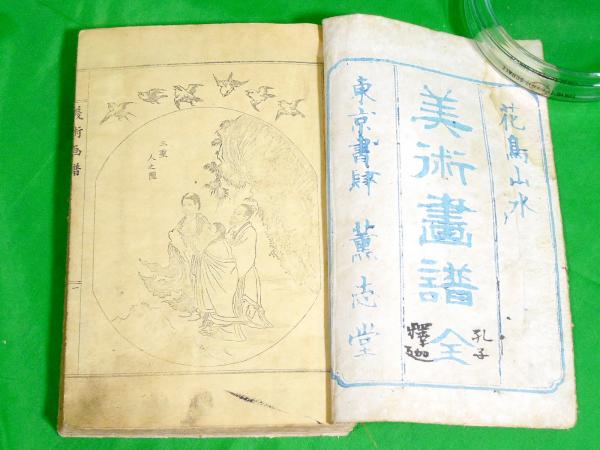 花鳥山水
美術畫譜全
孔子
釋迦
東京書肆 薫志堂
三聖
人之圖
美術画譜
一